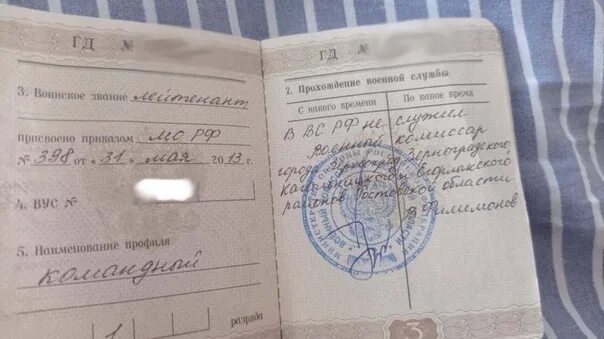 ГД №
3. Воинское звание лейтенант
присвоено приказом МО РФ
№ 398 от «31» мая 2013 г.
4. ВУС №
5. Наименование профиля
командный
1 разряда
ГД №
7. Прохождение военной службы
С какого времени По какое время
В ВС РФ не служил
Военный комиссар
города Зернограда, Зерноградского
Кагальницкого Егорлыкского
районов Ростовской области
Филимонов
3